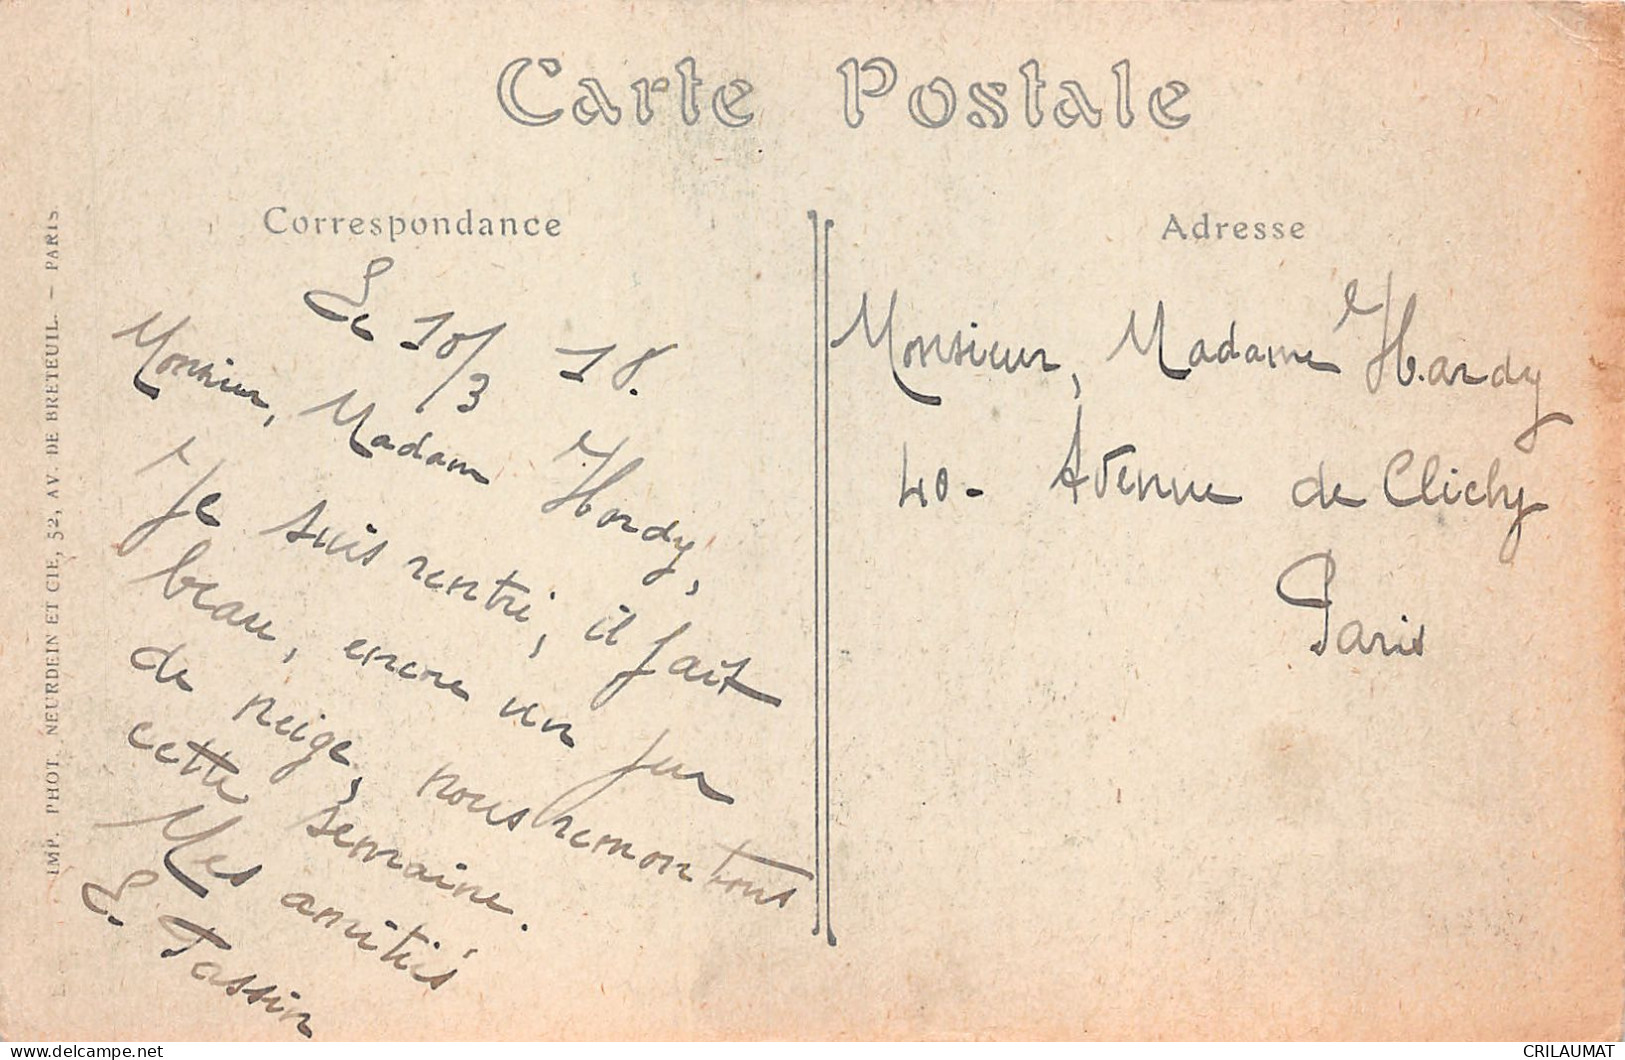 Carte Postale
Correspondance
Le 10/3 18.
Monsieur, Madame Hardy,
Je suis rentré, il fait
beau, encore un peu
de neige, nous remontons
cette semaine.
Mes amitiés
E. Tassin
Adresse
Monsieur, Madame Hardy
40 - Avenue de Clichy
Paris
IMP. PHOT. NEURDEIN ET CIE, 52, AV. DE BRETEUIL. — PARIS
delcampe.net
CRILAUMAT